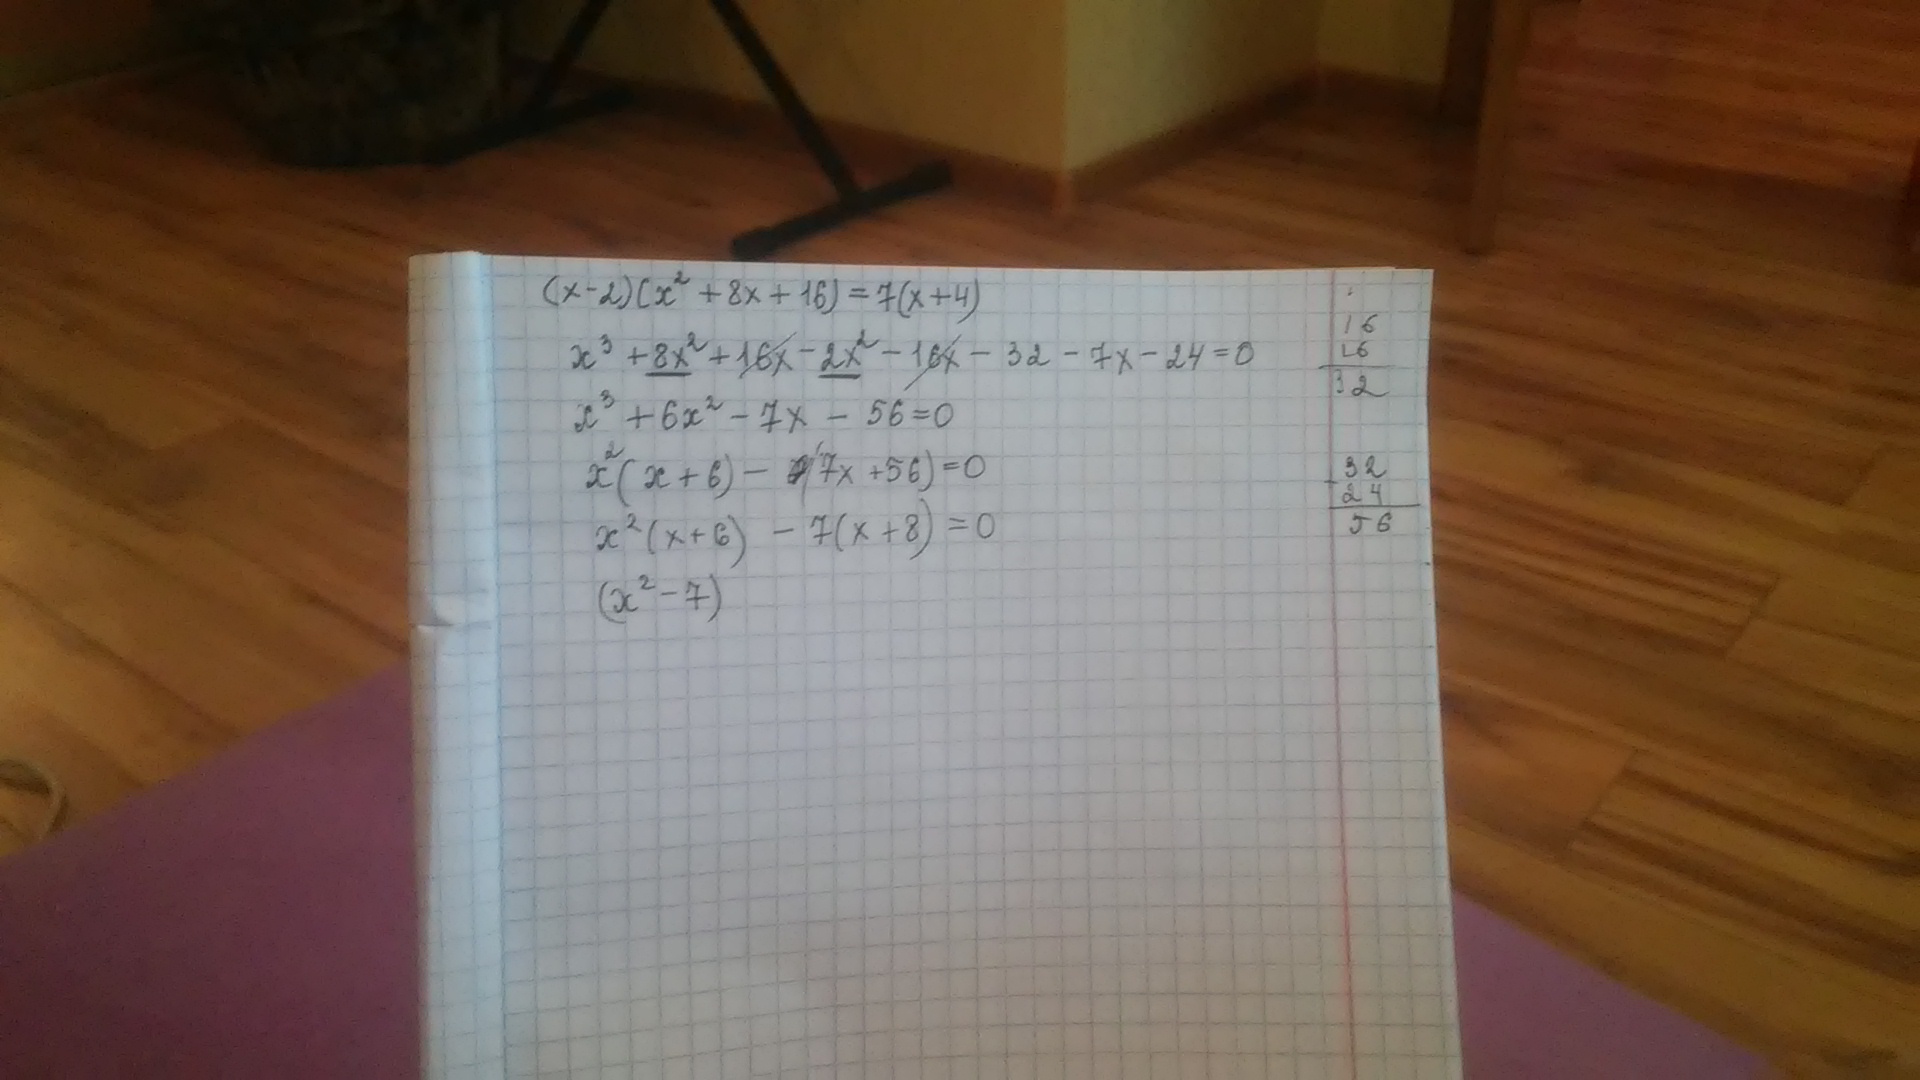 (x-2)(x²+8x+16)=7(x+4)
x³+8x²+16x-2x²-16x-32-7x-24=0
x³+6x²-7x-56=0
x²(x+6)-(7x+56)=0
x²(x+6)-7(x+8)=0
(x²-7)
16
16
32
32
24
56